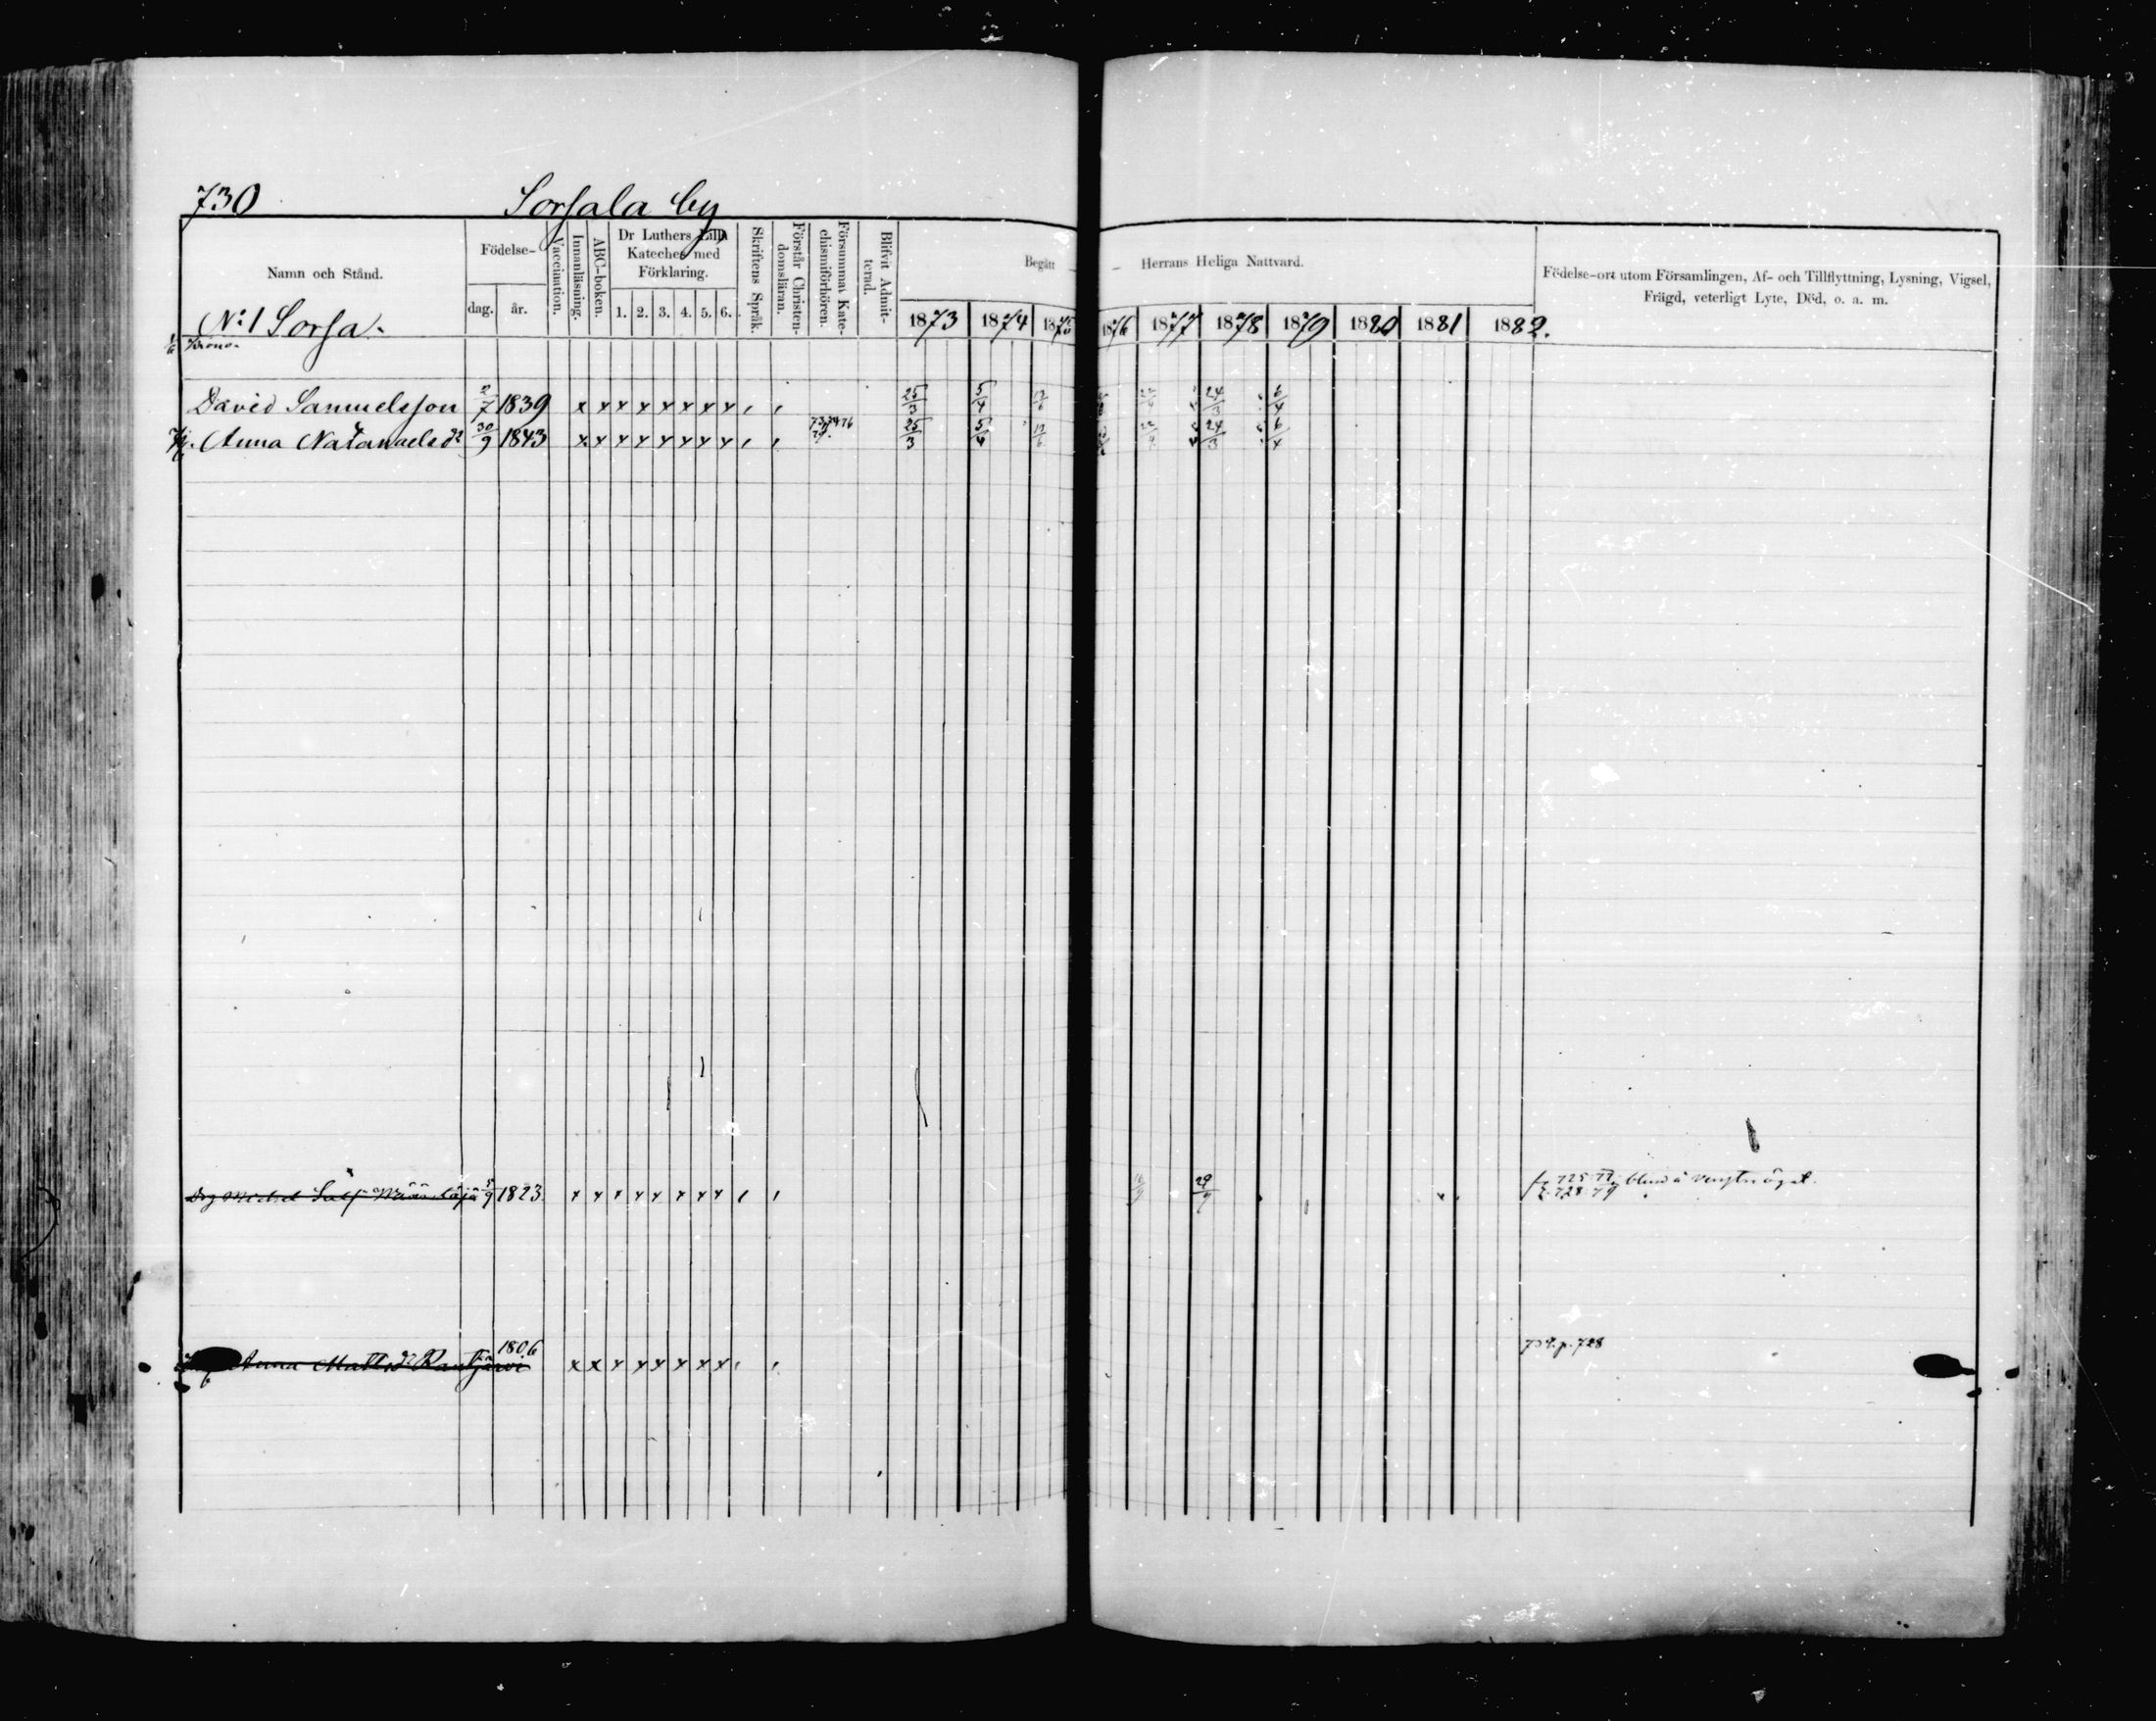 730 Sorsala by
Namn och Stånd.
Födelse-
dag. år.
Vaccination.
Innanläsning.
ABC-boken.
Dr Luthers Lilla Kateches med Förklaring.
1. 2. 3. 4. 5. 6.
Skriftens Språk.
Förstår Christen-domsläran.
Försummat Kate-chismiförhören.
Blifvit Admit-terad.
Begått Herrans Heliga Nattvard.
1873 1874 1875 1876 1877 1878 1879 1880 1881 1882.
Födelse-ort utom Församlingen, Af- och Tillflyttning, Lysning, Vigsel,
Frägd, veterligt Lyte, Död, o. a. m.
No 1 Sorsa.
Krono-
David Samuelsson 2/7 1839 x x x x x x x x 25/3 5/4 24/3 6/4
Anna Natanaelsd:r 30/9 1843 x x x x x x x x 25/3 5/4 24/3 6/4
5/9 1823 x x x x x x x x 29/9 blind å
Anna Mattsd:r 1806 x x x x x x x x p. 728